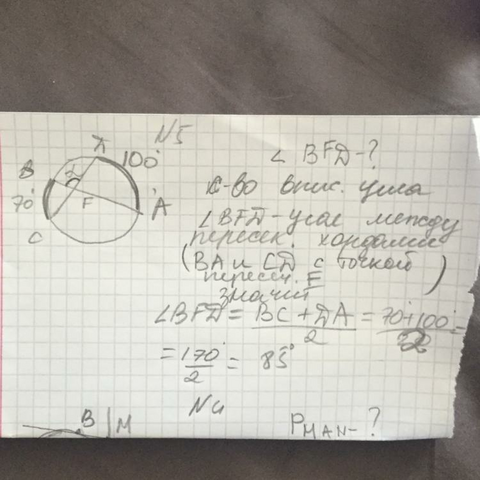 N5
Д
100°
B
70°
F
A
C
∠ BFД-?
к-во впис. угла
∠BFД - угол между
пересек. хордами
(BA и CД с точкой
пересеч. F)
значит
∠BFД = BC + ДA / 2 = 70+100 / 2 =
= 170 / 2 = 85°
N4
B
M
P MAN - ?